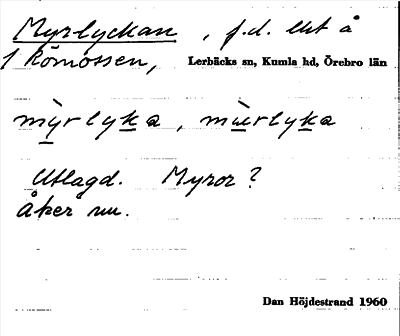 Myrlyckan, f.d. lht å
1 Römossen, Lerbäcks sn, Kumla hd, Örebro län
mỳrlyka, mùrlyka
Utlagd. Myror?
Åker nu.
Dan Höjdestrand 1960